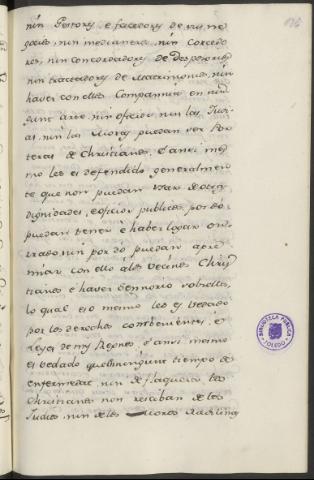 nin Gestores, e facedores de sus ne
gocios, nin medianeros, nin Corredo
res, nin concordadores de Desposorios,
nin tractadores de Matrimonios, nin
haver con ellos Compannia en nin
gunt arte, nin oficio; nin las Judi
as, nin las Moras puedan ser Par
teras de Christianos. E ansi mes
mo les es defendido generalmen
te que non puedan usar de
dignidades, e oficios publicos, por do
puedan tener è haber logar on
rado nin por do puedan apre
miar con ello á los vecinos Chris
tianos e haver sennorio sobrellos,
lo qual eso mesmo les es vedado
por los derechos combenientes, è
Leyes de mis Regnos. E ansi mesmo
es vedado que ningunt tiempo de
enfermedat, nin de flaqueza los
Christianos non reciban de los
Judios, nin de los Moros
136
BIBLIOTECA PUBLICA
TOLEDO